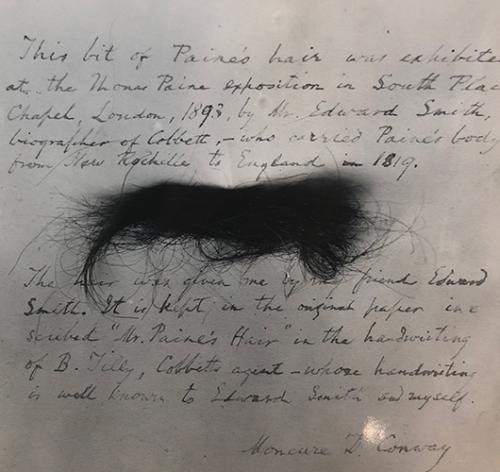 This bit of Paine's hair was exhibite
at the Thomas Paine exposition in South Plac
Chapel, London, 1893, by Mr. Edward Smith,
biographer of Cobbett, - who carried Paine's body
from New Rochelle to England in 1819.
The hair was given me by my friend Edward
Smith. It is kept in the original paper in
scribed "Mr. Paine's Hair" in the handwriting
of B. Tilly, Cobbetts agent - whose handwriting
is well known to Edward Smith and myself.
Moncure D. Conway